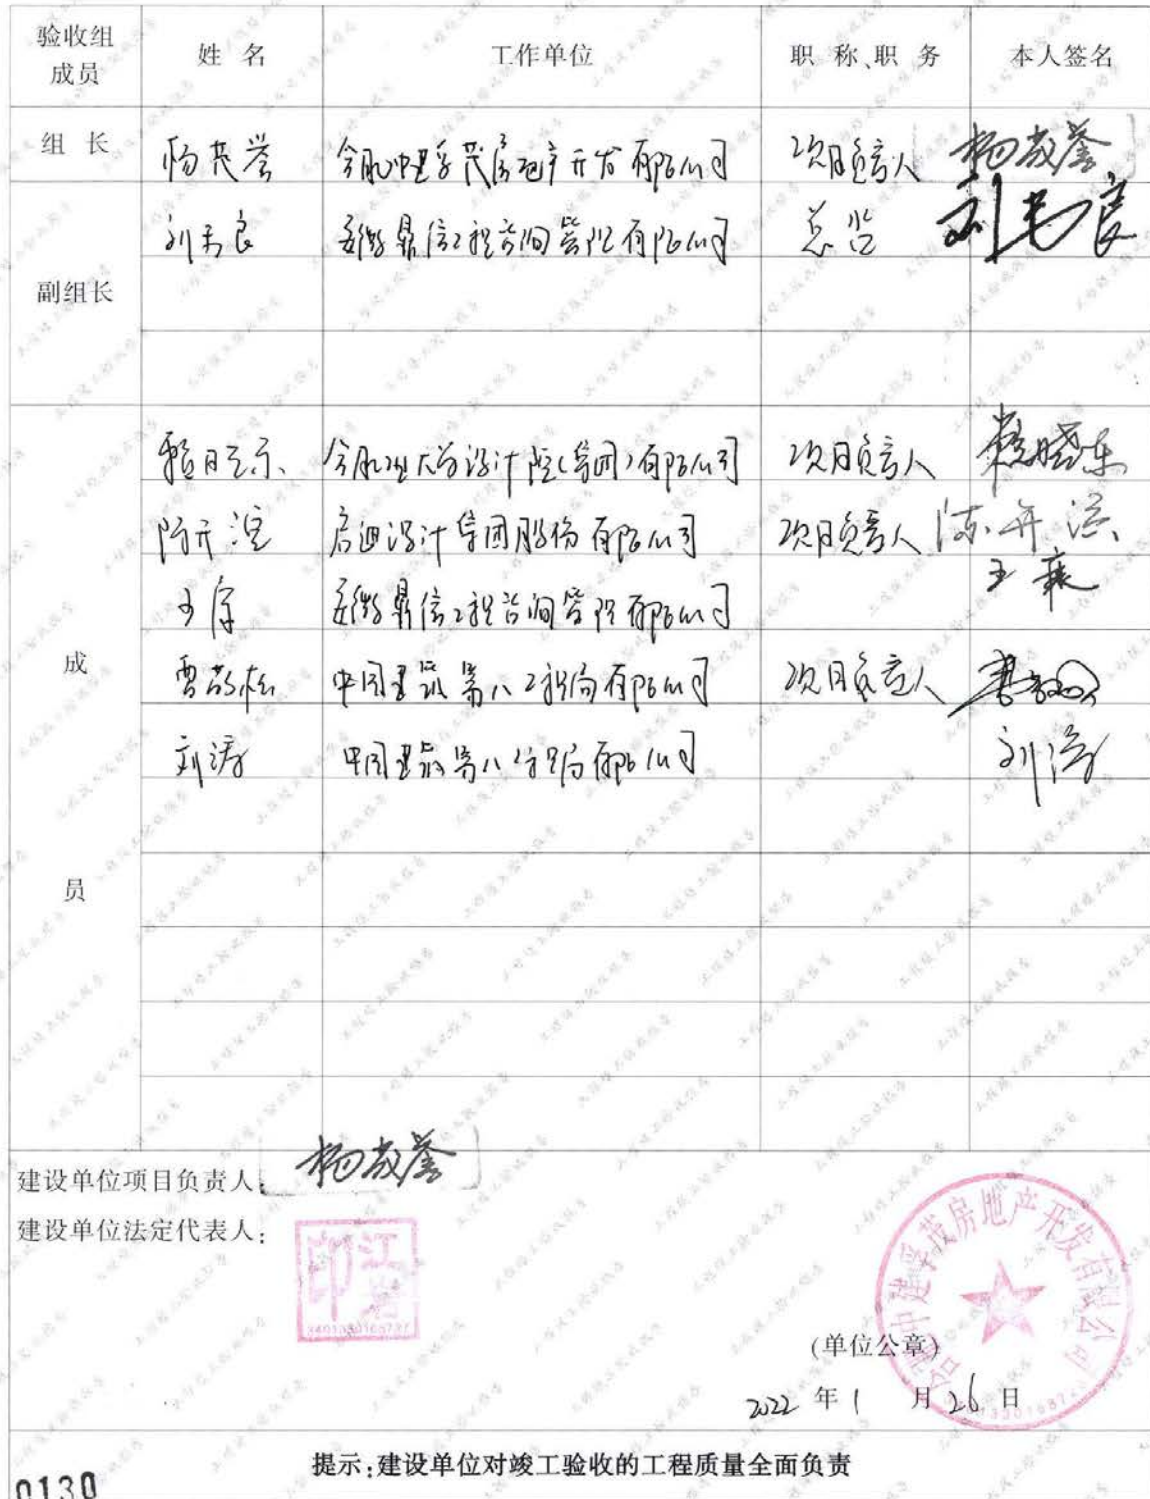 验收组成员 姓 名 工作单位 职 称、职 务 本人签名
组 长 杨茂誉 合肥中建孚茂房地产开发有限公司 项目负责人
刘志良 安徽鼎信工程咨询管理有限公司 总监
副组长
赖晓东 合肥工业大学设计院(集团)有限公司 项目负责人 赖晓东
启迪设计集团股份有限公司 项目负责人
安徽鼎信工程咨询管理有限公司
成 曹敬松 中国建筑第八工程局有限公司 项目负责人
刘涛 中国建筑第八工程局有限公司 刘涛
员
建设单位项目负责人:
建设单位法定代表人:
合肥中建孚茂房地产开发有限公司
(单位公章)
2022 年 1 月 26 日
提示:建设单位对竣工验收的工程质量全面负责
0130